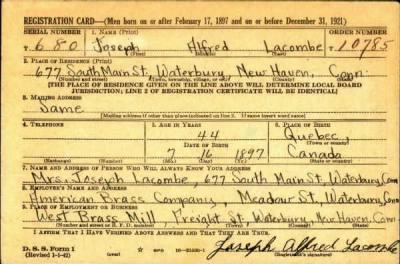 REGISTRATION CARD—(Men born on or after February 17, 1897 and on or before December 31, 1921)
SERIAL NUMBER 1. NAME (Print) ORDER NUMBER
T 680 Joseph Alfred Lacombe T10785
(First) (Middle) (Last)
2. PLACE OF RESIDENCE (Print)
677 South Main St, Waterbury, New Haven, Conn.
(Number and street) (Town, township, village, or city) (County) (State)
[THE PLACE OF RESIDENCE GIVEN ON THE LINE ABOVE WILL DETERMINE LOCAL BOARD
JURISDICTION; LINE 2 OF REGISTRATION CERTIFICATE WILL BE IDENTICAL]
3. MAILING ADDRESS
Same
[Mailing address if other than place indicated on line 2. If same insert word same]
4. TELEPHONE 5. AGE IN YEARS 6. PLACE OF BIRTH
44 Quebec,
DATE OF BIRTH (Town or county)
7 16 1897 Canada
(Exchange) (Number) (Mo.) (Day) (Yr.) (State or country)
7. NAME AND ADDRESS OF PERSON WHO WILL ALWAYS KNOW YOUR ADDRESS
Mrs. Joseph Lacombe, 677 South Main St, Waterbury, Conn
8. EMPLOYER'S NAME AND ADDRESS
American Brass Company, Meadow St, Waterbury, Conn
9. PLACE OF EMPLOYMENT OR BUSINESS
West Brass Mill, Freight St. Waterbury, New Haven, Conn.
(Number and street or R. F. D. number) (Town) (County) (State)
I AFFIRM THAT I HAVE VERIFIED ABOVE ANSWERS AND THAT THEY ARE TRUE.
D. S. S. Form 1
(Revised 1-1-42) Joseph Alfred Lacombe
(Registrant's signature)